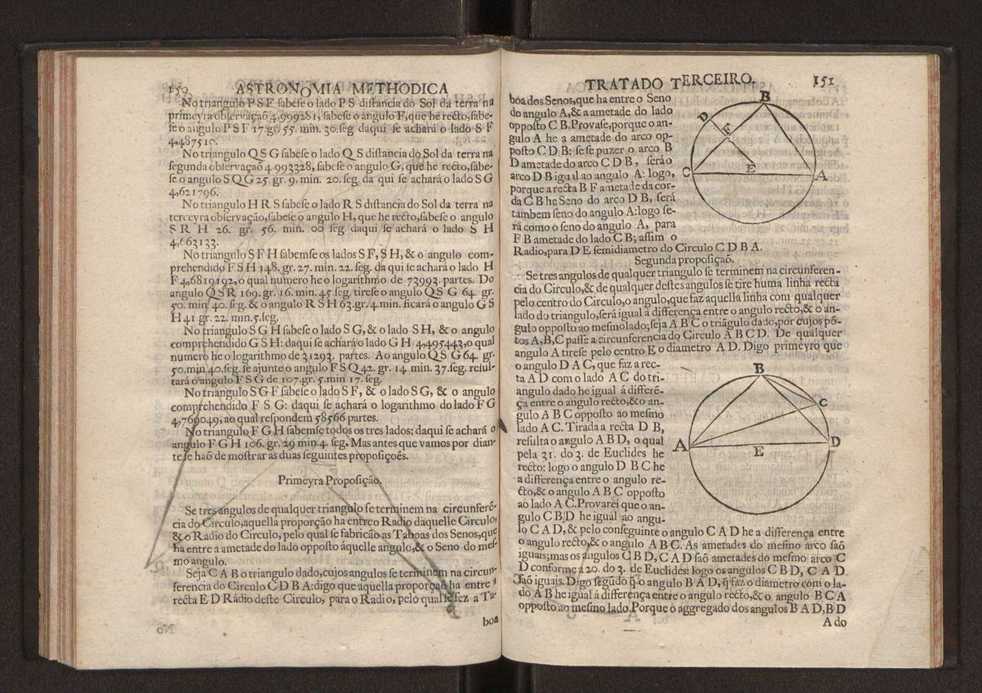 150 ASTRONOMIA METHODICA
No triangulo P S F sabese o lado P S distancia do Sol da terra na
primeyra observaçaõ 4.999281, sabese o angulo F, que he recto, sabe-
se o angulo P S F 17. gr. 55. min. 30. seg daqui se achará o lado S F
4,487510.
No triangulo Q S G sabese o lado Q S distancia do Sol da terra na
segunda observaçaõ 4.993328, sabese o angulo G, que he recto, sabe-
se o angulo S Q G 25. gr. 9. min. 20. seg. da qui se achará o lado S G
4,621796.
No triangulo H R S sabese o lado R S distancia do Sol da terra na
terceyra observaçaõ, sabese o angulo H, que he recto, sabese o angulo
S R H 26. gr. 56. min. 00 seg daqui se achará o lado S H
4,663133.
No triangulo S F H sabemse os lados S F, S H, & o angulo com-
prehendido F S H 148. gr. 27. min. 22. seg. da qui se achará o lado H
F 4,6819192, o qual numero he o logarithmo de 73993. partes. Do
angulo Q S R 169. gr. 16. min. 45. seg. tirese o angulo Q S G 64. gr.
50. min. 40. seg. & o angulo R S H 63. gr. 4. min. ficará o angulo G S
H 41 gr. 22. min. 5. seg.
No triangulo S G H sabese o lado S G, & o lado S H, & o angulo
comprehendido G S H: daqui se achará o lado G H 4,495443, o qual
numero he o logarithmo de 31293. partes. Ao angulo Q S G 64. gr.
50. min. 40. seg. se ajunte o angulo F S Q 42. gr. 14 min. 37. seg. resul-
tará o angulo F S G de 107. gr. 5. min 17. seg.
No triangulo S G F sabese o lado S F, & o lado S G, & o angulo
comprehendido F S G: daqui se achará o logarithmo do lado F G
4,769049, ao qual respondem 58566 partes.
No triangulo F G H sabemse todos os tres lados; daqui se achará o
angulo F G H 106. gr. 29 min 4. seg. Mas antes que vamos por dian-
te se haõ de mostrar as duas seguintes proposiçoẽs.
Primeyra Proposiçaõ.
Se tres angulos de qualquer triangulo se terminem na circunferẽ-
cia do Circulo, aquella proporçaõ ha entre o Radio daquelle Circulo,
& o Radio do Circulo, pelo qual se fabricaõ as Taboas dos Senos, que
ha entre a ametade do lado opposto áquelle angulo, & o Seno do mes-
mo angulo.
Seja C A B o triangulo dado, cujos angulos se terminem na circun-
ferencia do Circulo C D B A: digo que aquella proporçaõ ha entre a
recta E D Radio deste Circulo, para o Radio, pelo qual se fez a Ta-
boa
TRATADO TERCEIRO. 151
boa dos Senos, que ha entre o Seno
do angulo A, & a ametade do lado
opposto C B. Provase, porque o an-
gulo A he a ametade do arco op-
posto C D B: se se puzer o arco B
D ametade do arco C D B, será o
arco D B igual ao angulo A: logo,
porque a recta B F ametade da cor-
da C B he Seno do arco D B, será
tambem seno do angulo A: logo se-
rá como o seno do angulo A, para
F B ametade do lado C B; assim o
Radio, para D E semidiametro do Circulo C D B A.
B
D
F
E
C
A
Segunda proposiçaõ.
Se tres angulos de qualquer triangulo se terminem na circunferen-
cia do Circulo, & de qualquer destes angulos se tire huma linha recta
pelo centro do Circulo, o angulo, que faz aquella linha com qualquer
lado do triangulo, será igual á differença entre o angulo recto, & o an-
gulo opposto ao mesmo lado; seja A B C o triãgulo dado, por cujos põ-
tos A, B, C passe a circunferencia do Circulo A B C D. De qualquer
angulo A tirese pelo centro E o diametro A D. Digo primeyro que
o angulo D A C, que faz a rec-
ta A D com o lado A C do tri-
angulo dado he igual á differẽ-
ça entre o angulo recto, & o an-
gulo A B C opposto ao mesmo
lado A C. Tirada a recta D B,
resulta o angulo A B D, o qual
pela 31. do 3. de Euclides he
recto: logo o angulo D B C he
a differença entre o angulo re-
cto, & o angulo A B C opposto
ao lado A C. Provarei que o an-
gulo C B D he igual ao angu-
lo C A D, & pelo conseguinte o angulo C A D he a differença entre
o angulo recto, & o angulo A B C. As ametades do mesmo arco saõ
iguais; mas os angulos C B D, C A D saõ ametades do mesmo arco C
D conforme a 20. do 3. de Euclides logo os angulos C B D, C A D
saõ iguais. Digo segũdo q̃ o angulo B A D, q̃ faz o diametro com o la-
do A B he igual á differença entre o angulo recto, & o angulo B C A
opposto ao mesmo lado. Porque o aggregado dos angulos B A D, B D
A do
B
C
A
D
E